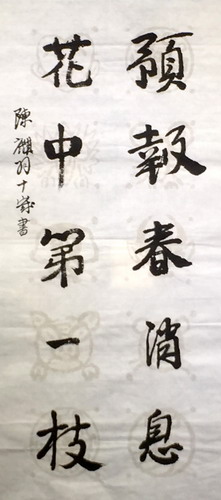 預報春消息
花中第一枝
陳 羽十歲書